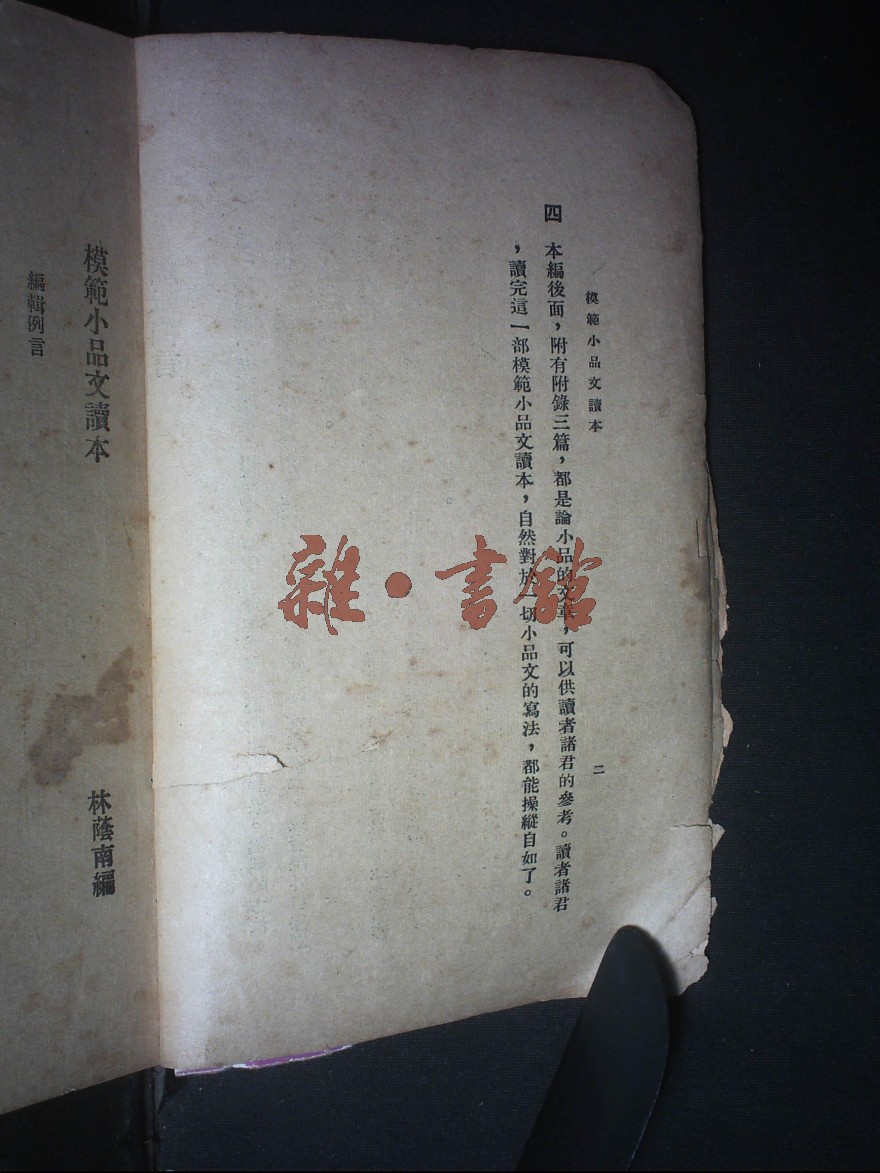 模範小品文讀本
二
四　本編後面，附有附錄三篇，都是論小品的文章，可以供讀者諸君的參考。讀者諸君
，讀完這一部模範小品文讀本，自然對於一切小品文的寫法，都能操縱自如了。
模範小品文讀本
林蔭南編
編輯例言
雜·書館